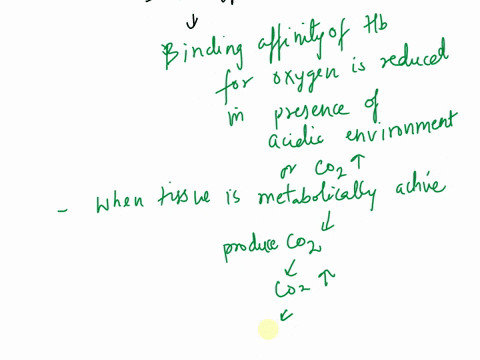 ↓
Binding affinity of Hb
for oxygen is reduced
in presence of
acidic environment
or CO2 ↑
- When tissue is metabolically active
↓
produce CO2
↓
CO2 ↑
↓